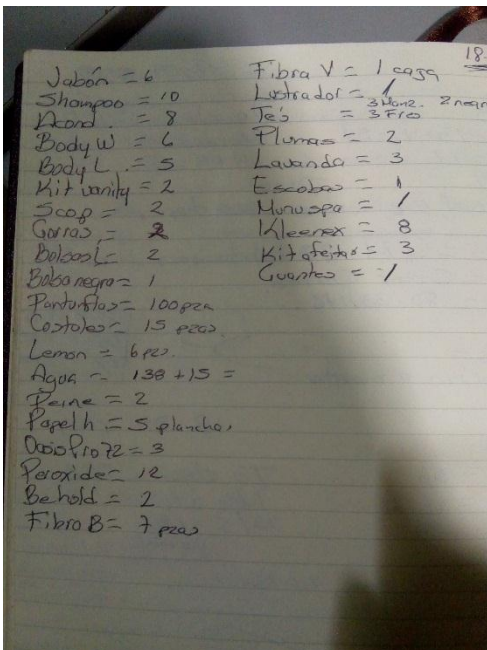 18
Jabón = 6
Shampoo = 10
Acond. = 8
Body W = 6
Body L. = 5
Kit vanity = 2
Scop = 2
Gorras = 2
Bolsas L = 2
Bolsa negra = 1
Pantunflas = 100 pza
Costales = 15 pzas
Lemon = 6 pzs.
Agua = 138 + 15 =
Peine = 2
Papel h = 5 planchas
Oasis Pro 72 = 3
Peroxide = 12
Behold = 2
Fibra B = 7 pzas
Fibra V = 1 caja
Lustrador = 1
3 Manz. 2 negr
Te's = 3 Fres
Plumas = 2
Lavanda = 3
Escobas = 1
Menu spa = 1
Kleenex = 8
Kit afeitar = 3
Guantes = 1